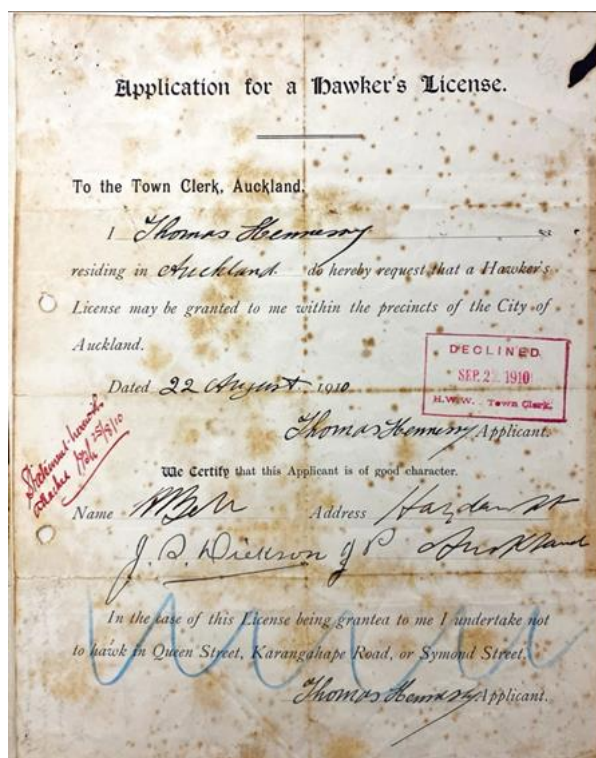 Application for a Hawker's License.
To the Town Clerk, Auckland.
I Thomas Hennessy
residing in Auckland do hereby request that a Hawker's
License may be granted to me within the precincts of the City of
Auckland.
DECLINED
SEP. 22 1910
H.W.W. Town Clerk.
Dated 22 August 1910
Thomas Hennessy Applicant.
Statement herewith
attached 25/8/10
We Certify that this Applicant is of good character.
Name Address Haydn St
J. S. Dickson JP Auckland
In the case of this License being granted to me I undertake not
to hawk in Queen Street, Karangahape Road, or Symond Street.
Thomas Hennessy Applicant.